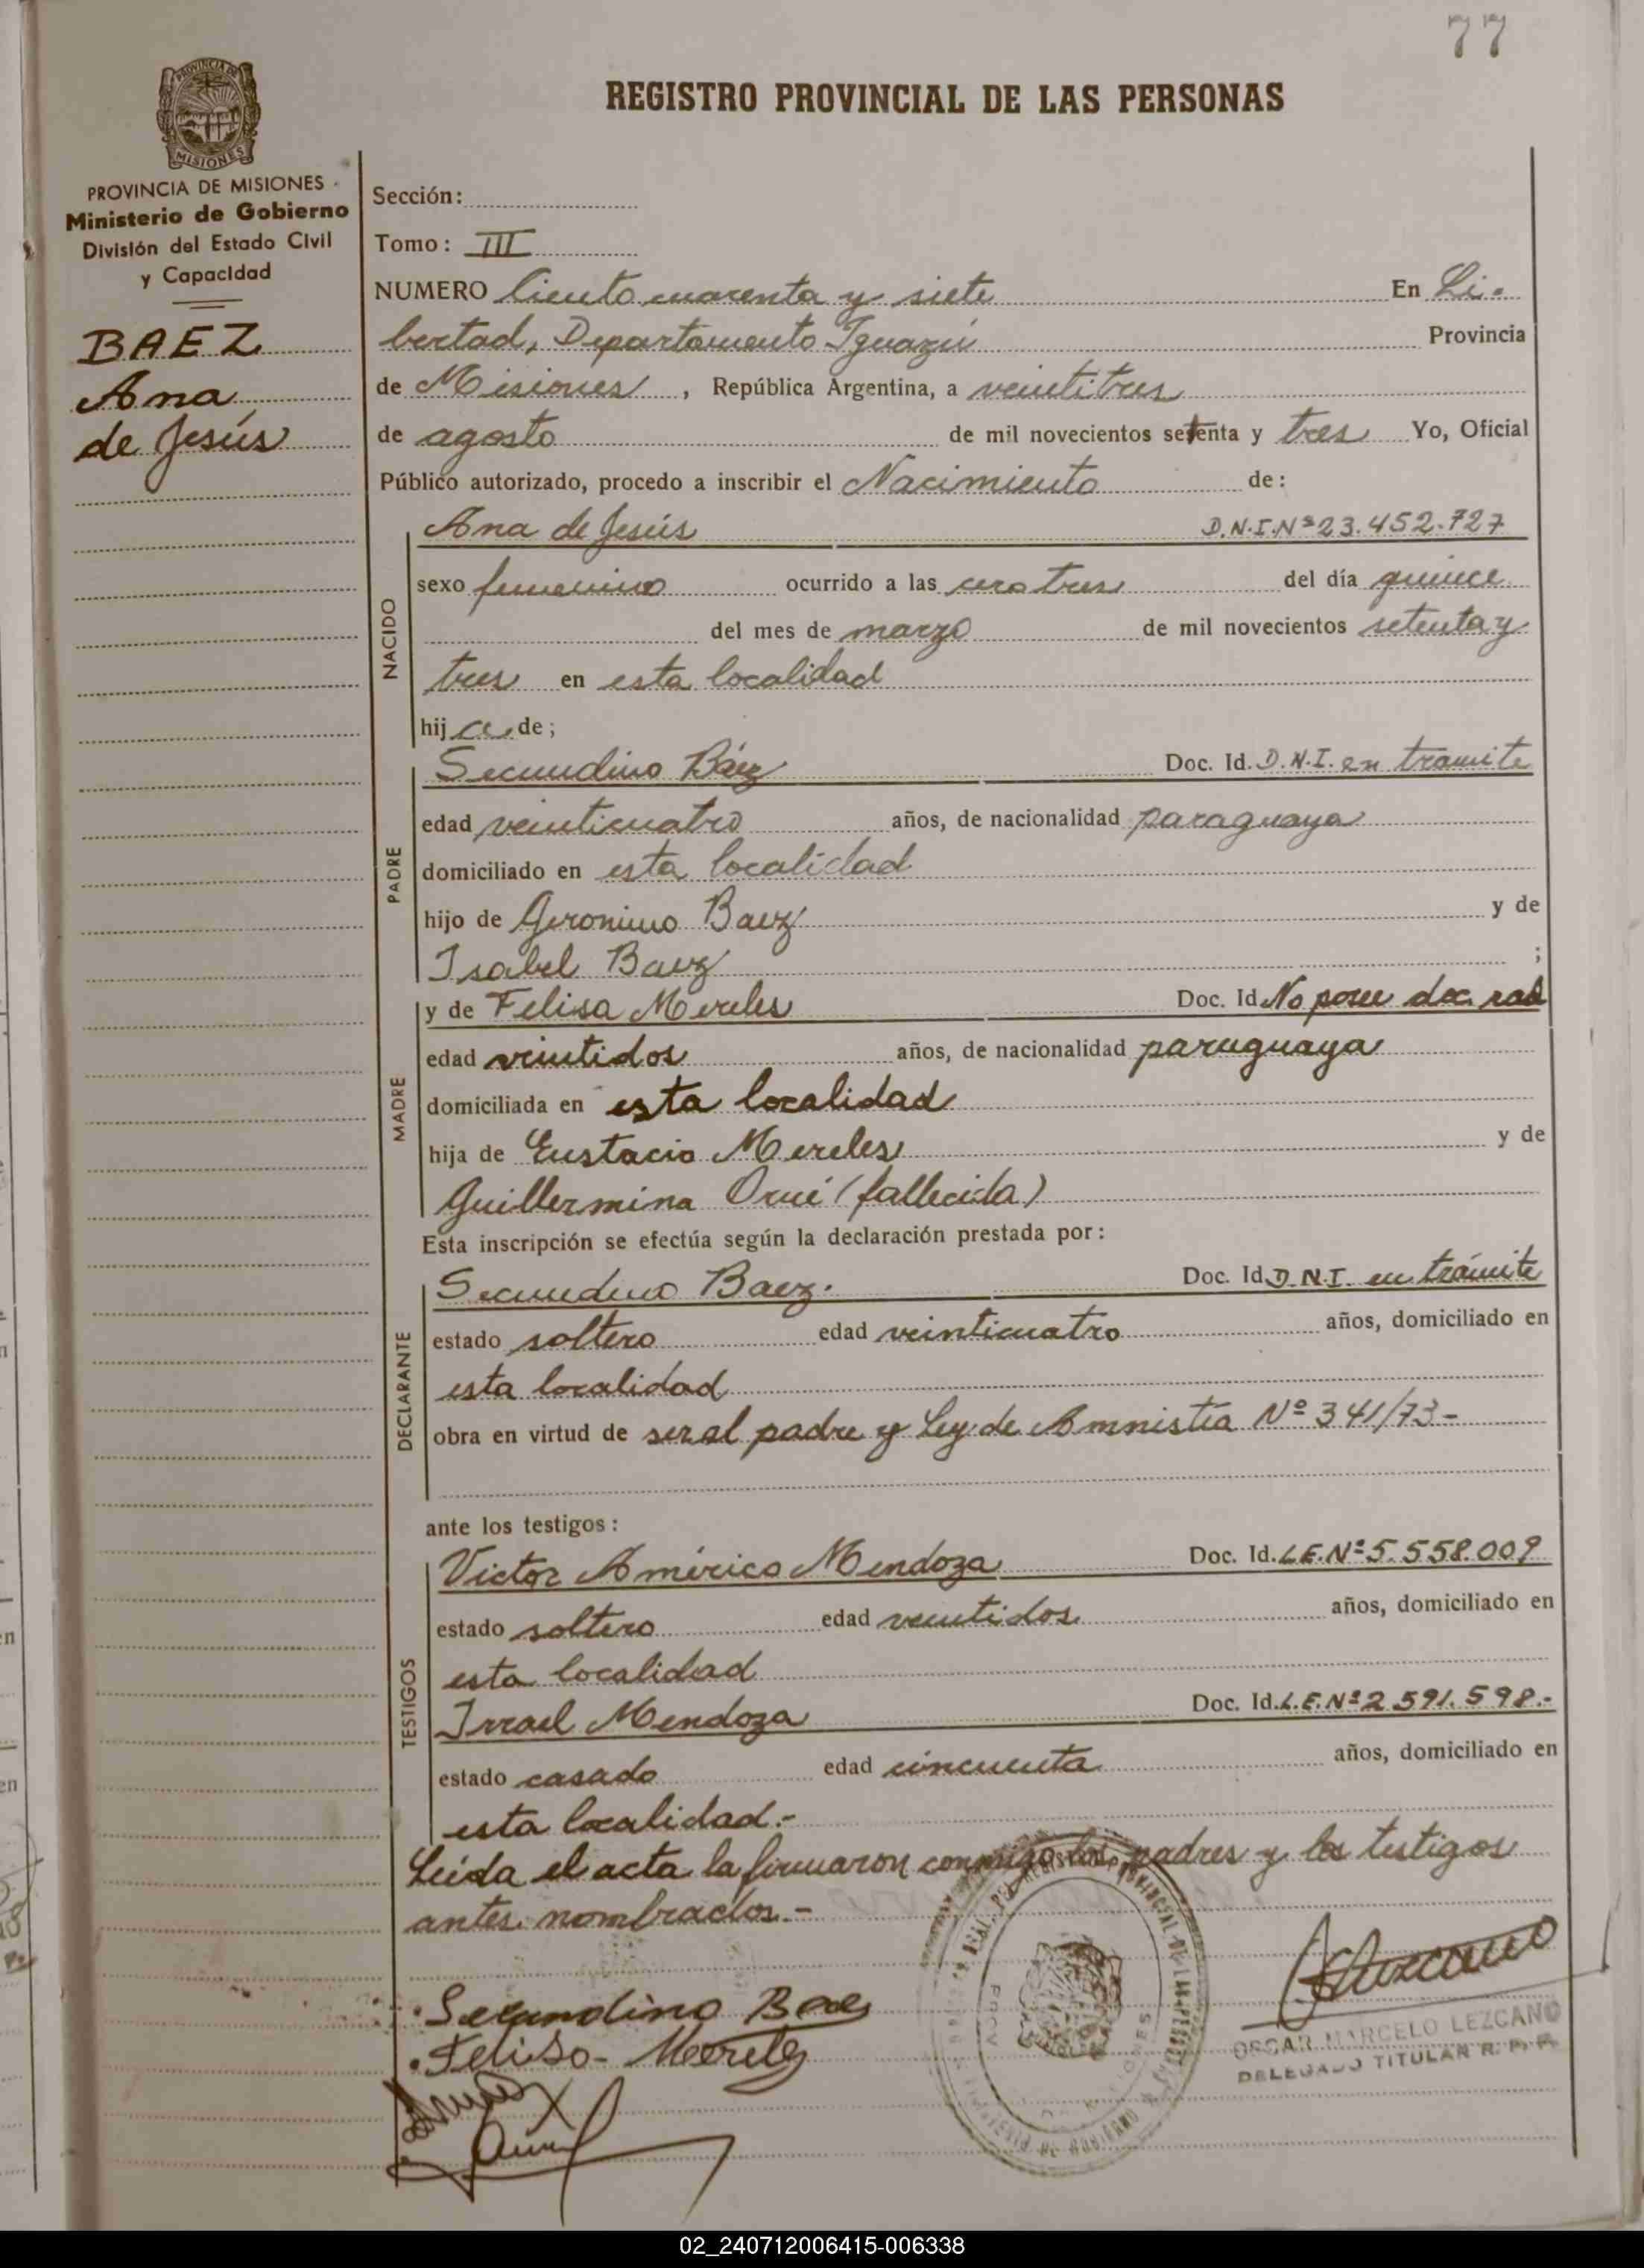 77
REGISTRO PROVINCIAL DE LAS PERSONAS
PROVINCIA DE MISIONES
PROVINCIA DE MISIONES
Ministerio de Gobierno
División del Estado Civil
y Capacidad
BAEZ
Ana
de Jesús
Sección:
Tomo: III
NUMERO Ciento cuarenta y siete En Li-
bertad, Departamento Iguazú Provincia
de Misiones, República Argentina, a veintitres
de agosto de mil novecientos setenta y tres Yo, Oficial
Público autorizado, procedo a inscribir el Nacimiento de:
NACIDO
Ana de Jesús D.N.I.Nº23.452.727
sexo femenino ocurrido a las cero tres del día quince
del mes de marzo de mil novecientos setenta y
tres en esta localidad
hija de;
PADRE
Secundino Báez Doc. Id. D.N.I. en tramite
edad veinticuatro años, de nacionalidad paraguaya
domiciliado en esta localidad
hijo de Geronimo Baez y de
Isabel Baez ;
MADRE
y de Felisa Mereles Doc. Id. No posee doc.
edad veintidos años, de nacionalidad paraguaya
domiciliada en esta localidad
hija de Eustacio Mereles y de
Guillermina Orué (fallecida)
Esta inscripción se efectúa según la declaración prestada por:
DECLARANTE
Secundino Baez. Doc. Id. D.N.I. en trámite
estado soltero edad veinticuatro años, domiciliado en
esta localidad
obra en virtud de ser el padre y Ley de Amnistía Nº 341/73-
ante los testigos:
TESTIGOS
Victor Américo Mendoza Doc. Id. L.E.Nº5.558.009
estado soltero edad veintidos años, domiciliado en
esta localidad
Israel Mendoza Doc. Id. L.E.Nº2.591.598.-
estado casado edad cincuenta años, domiciliado en
esta localidad.-
Leída el acta la firmaron conmigo los padres y los testigos
antes nombrados.-
Secundino Baes
Felisa- Mereles
OSCAR MARCELO LEZCANO
DELEGADO TITULAR R. P. P.
02_240712006415-006338